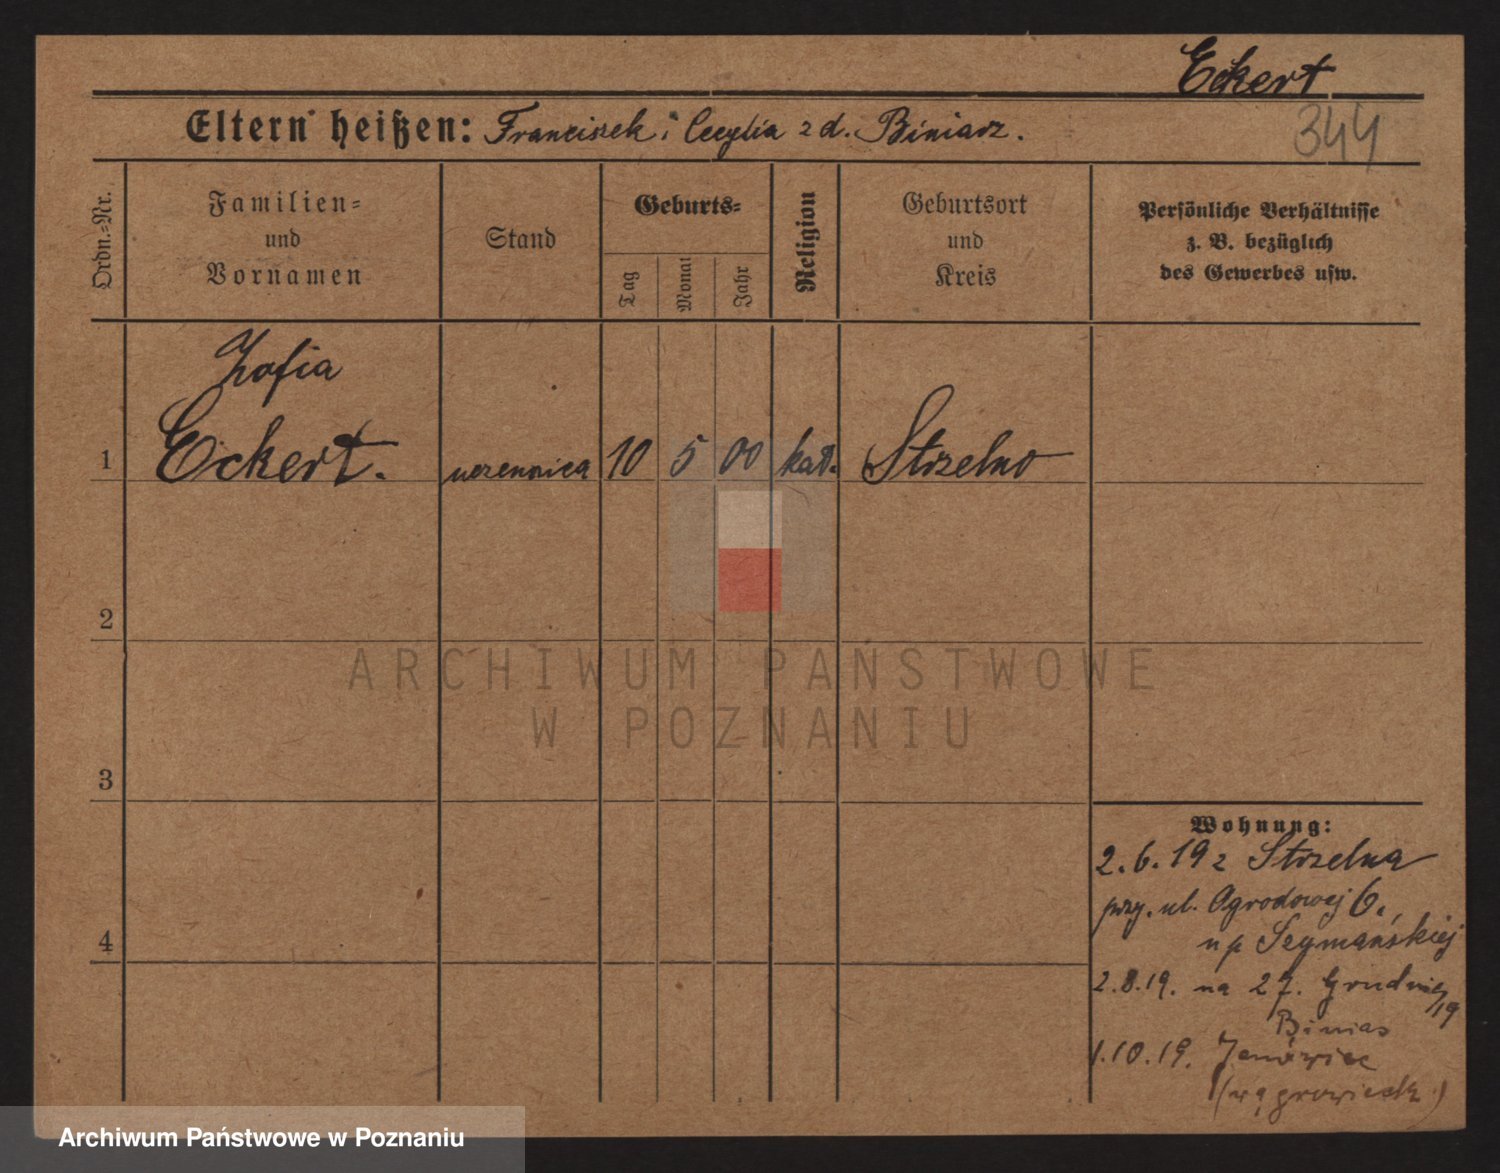 Eckert
344
Eltern heißen: Franciszek i Cecylia z d. Biniasz.
Ordn.-Nr.
Familien-
und
Vornamen
Stand
Geburts-
Tag
Monat
Jahr
Religion
Geburtsort
und
Kreis
Persönliche Verhältnisse
z. B. bezüglich
des Gewerbes usw.
Zofia
1 Eckert. uczennica 10 5 00 kat. Strzelno
2
3
4
Wohnung:
2.6.19 z Strzelna
przy. ul. Ogrodowej 6.
u p Szymańskiej
2.8.19. na 27. Grudnia
/19
Binias
1.10.19. Janówiec
(wągrowieck.)
ARCHIWUM PAŃSTWOWE
W POZNANIU
Archiwum Państwowe w Poznaniu